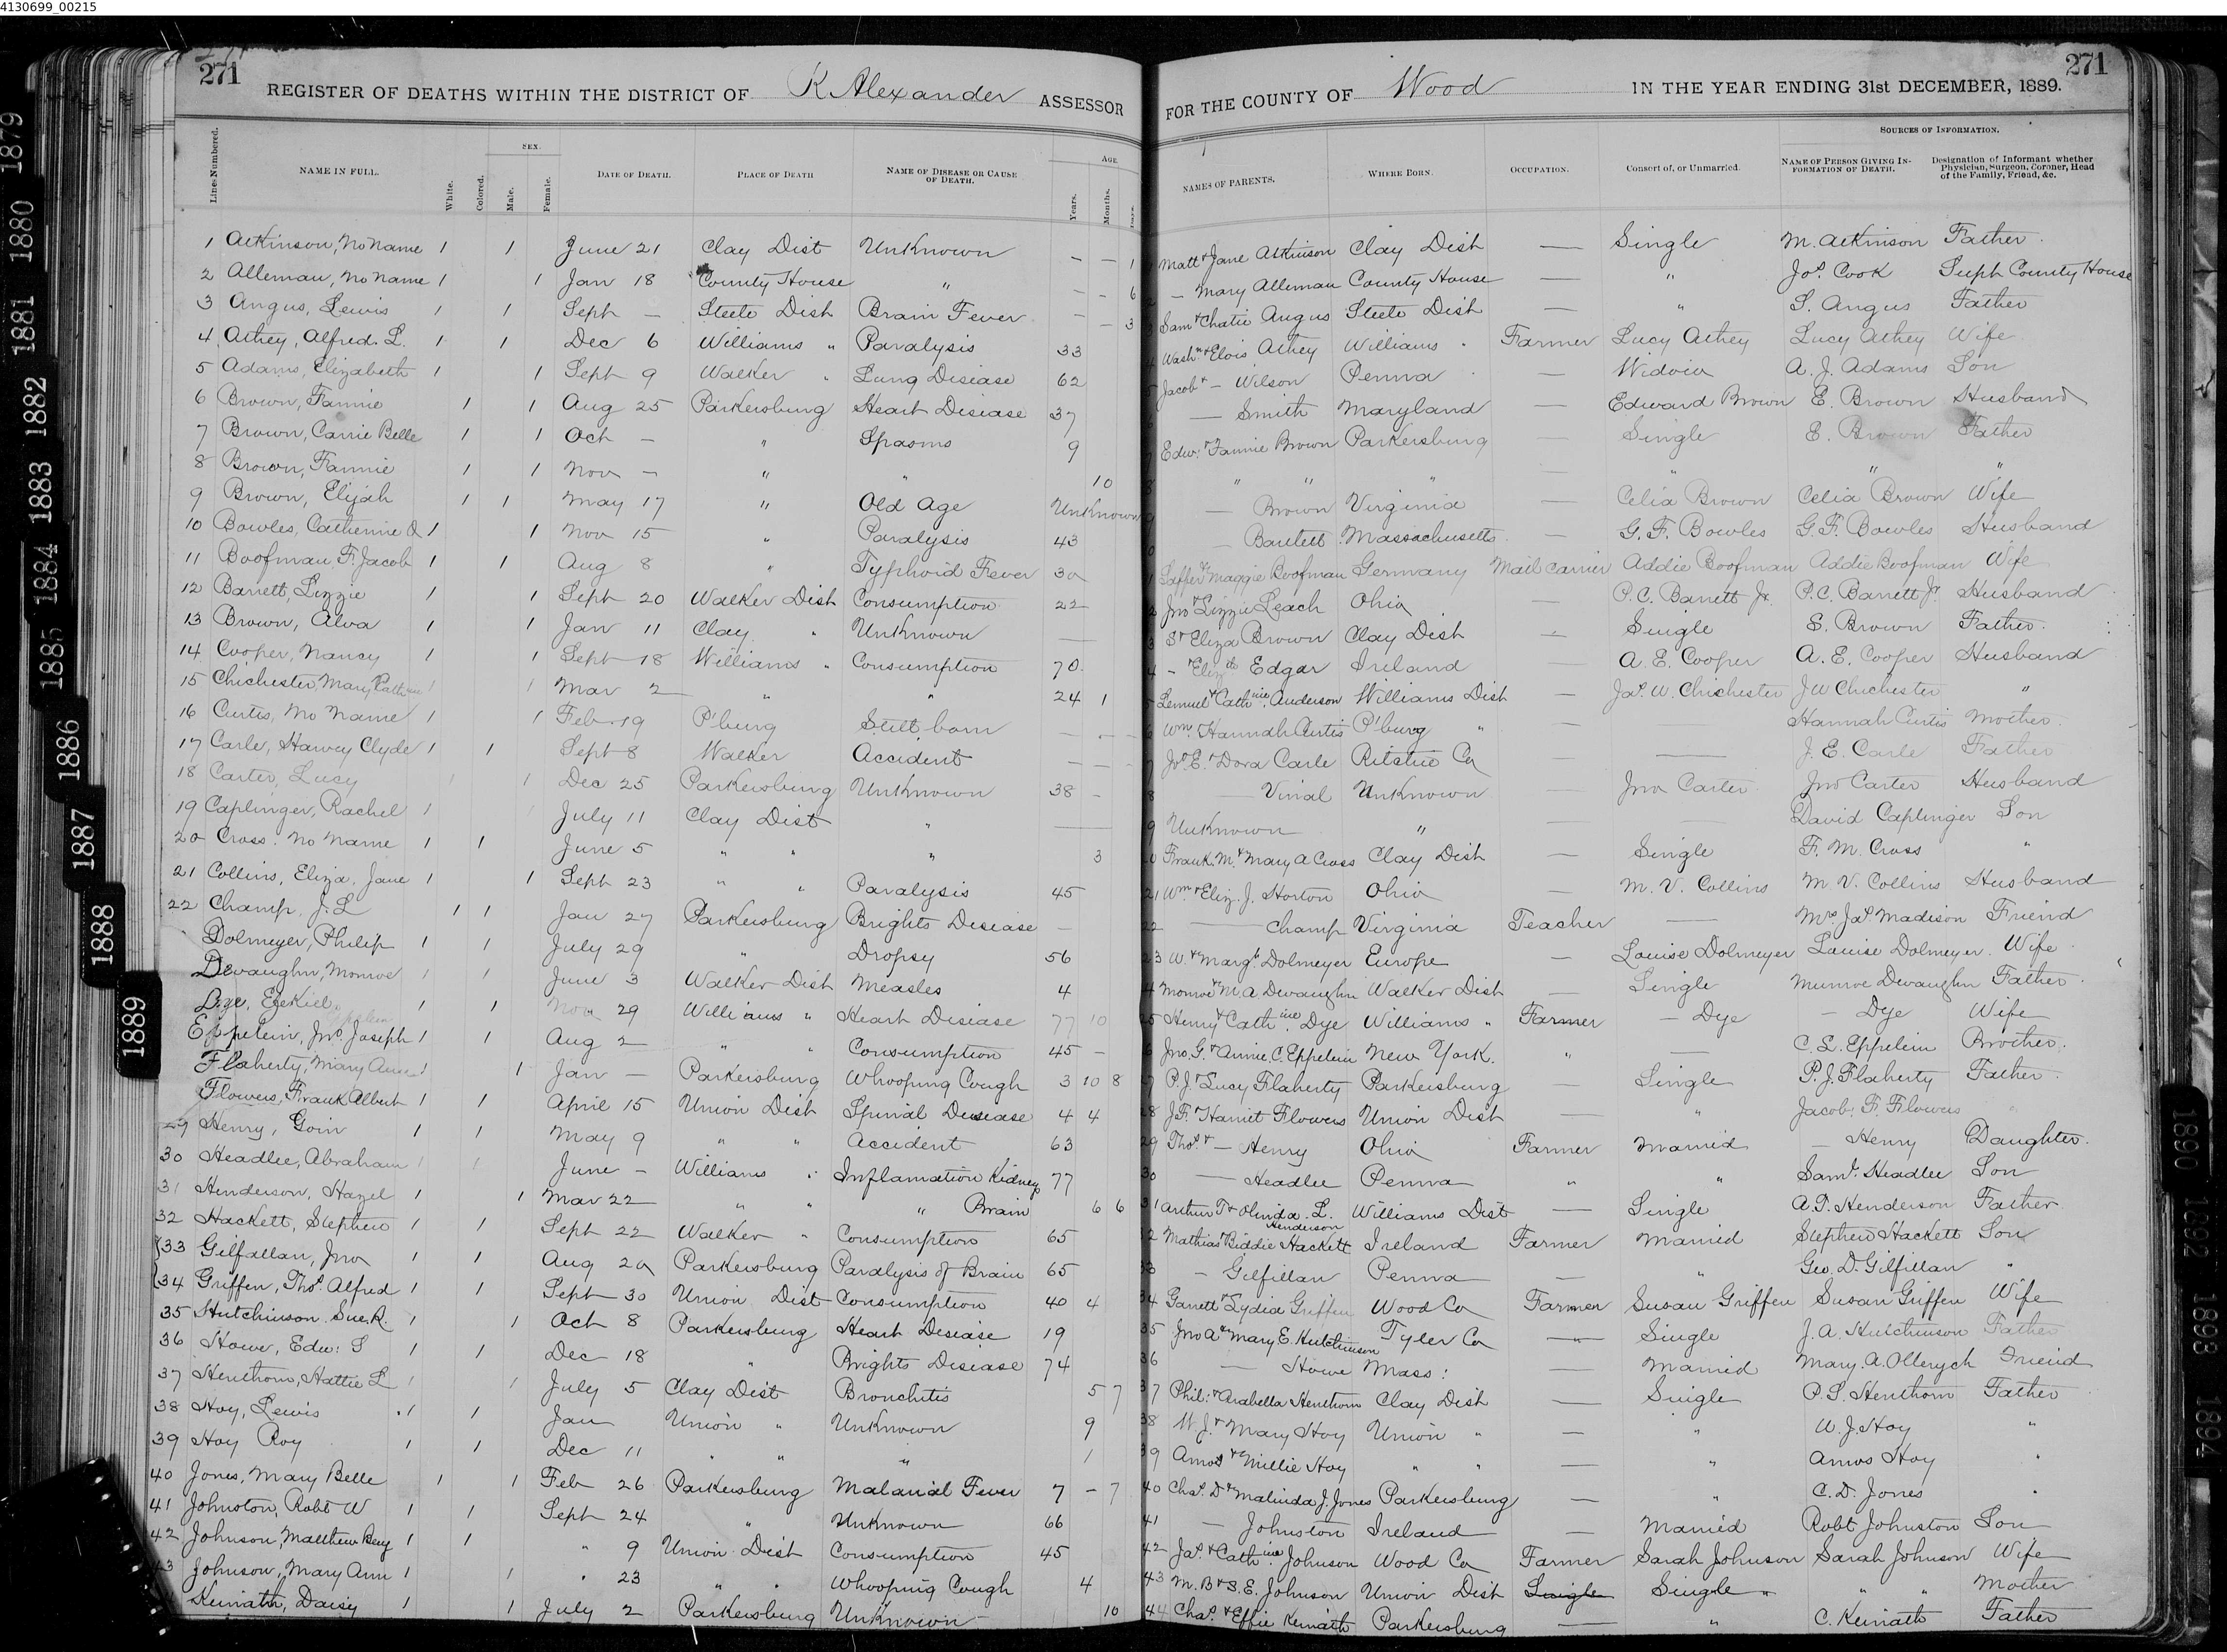 4130699_00215
271
REGISTER OF DEATHS WITHIN THE DISTRICT OF K Alexander ASSESSOR FOR THE COUNTY OF Wood IN THE YEAR ENDING 31st DECEMBER, 1889.
271
Lines Numbered. NAME IN FULL. White. Colored. SEX. Male. Female. DATE OF DEATH. PLACE OF DEATH NAME OF DISEASE OR CAUSE OF DEATH. AGE. Years. Months. Days. NAMES OF PARENTS. WHERE BORN. OCCUPATION. Consort of, or Unmarried. SOURCES OF INFORMATION. NAME OF PERSON GIVING INFORMATION OF DEATH. Designation of Informant whether Physician, Surgeon, Coroner, Head of the Family, Friend, &c.
1 Atkinson, No Name 1 1 June 21 Clay Dist Unknown — — 1 Matt & Jane Atkinson Clay Dist — Single M. Atkinson Father
2 Alleman, No Name 1 1 Jan 18 County House " — - 6 — Mary Alleman County House — " Jos. Cook Supt County House
3 Angus, Lewis 1 1 Sept — Steele Dist Brain Fever — - 3 Sam & Chatie Angus Steele Dist — " S. Angus Father
4 Athey, Alfred. L. 1 1 Dec 6 Williams " Paralysis 33 Washn & Elois Athey Williams " Farmer Lucy Athey Lucy Athey Wife
5 Adams, Elizabeth 1 1 Sept 9 Walker " Lung Disease 62 Jacob & — Wilson Penna — Widow A. J. Adams Son
6 Brown, Fannie 1 1 Aug 25 Parkersburg Heart Disease 37 — Smith Maryland — Edward Brown E. Brown Husband
7 Brown, Carrie Belle 1 1 Oct — " Spasms 9 Edw: & Fannie Brown Parkersburg — Single E. Brown Father
8 Brown, Fannie 1 1 Nov — " " 10 " " " " — " " "
9 Brown, Elijah 1 1 May 17 " Old Age Unknown — Brown Virginia — Celia Brown Celia Brown Wife
10 Bowles, Catherine A 1 1 Nov 15 " Paralysis 43 — Bartlett Massachusetts — G. F. Bowles G. F. Bowles Husband
11 Boofman, F. Jacob 1 1 Aug 8 " Typhoid Fever 30 & Maggie Boofman Germany Mail carrier Addie Boofman Addie Boofman Wife
12 Barrett, Lizzie 1 1 Sept 20 Walker Dist Consumption 22 Jno & Lizzie Leach Ohio — P. C. Barrett Jr. P. C. Barrett Jr Husband
13 Brown, Alva 1 1 Jan 11 Clay " Unknown — S & Eliza Brown Clay Dist — Single S. Brown Father
14 Cooper, Nancy 1 1 Sept 18 Williams " Consumption 70 — & Elizth Edgar Ireland A. E. Cooper A. E. Cooper Husband
15 Chichester, Mary 1 1 Mar 2 " " 24 1 Lemuel & Cathine Anderson Williams Dist — Jas. W. Chichester J W Chichester "
16 Curtis, No Name 1 1 Feb 19 P'burg Still born — - - Wm & Hannah Curtis P'burg " — — Hannah Curtis Mother
17 Carle, Harvey Clyde 1 1 Sept 8 Walker Accident — — — Jos. E. & Dora Carle Ritchie Co — — J. E. Carle Father
18 Carter, Lucy 1 1 Dec 25 Parkersburg Unknown 38 - — Vinal Unknown — Jno Carter Jno Carter Husband
19 Caplinger, Rachel 1 July 11 Clay Dist " — Unknown " — — David Caplinger Son
20 Cross. No Name 1 1 June 5 " " " 3 Frank. M. & Mary A Cross Clay Dist — Single F. M. Cross "
21 Collins, Eliza, Jane 1 1 Sept 23 " " Paralysis 45 21 Wm & Eliz. J. Horton Ohio — M. V. Collins M. V. Collins Husband
22 Champ, J. L 1 1 Jan 27 Parkersburg Brights Disease — 22 — Champ Virginia Teacher — Mrs Jas. Madison Friend
Dolmeyer, Philip 1 1 July 29 " Dropsy 56 23 W. & Margt. Dolmeyer Europe — Louise Dolmeyer Louise Dolmeyer Wife
Devaughn, Monroe 1 1 June 3 Walker Dist Measles 4 4 Monroe & M. A Devaughn Walker Dist — Single Munroe Devaughn Father
Dye, Ezekiel 1 1 Nov 29 Williams " Heart Disease 77 10 25 Henry & Cathine Dye Williams " Farmer — Dye — Dye Wife
Eppelein, Jno. Joseph 1 1 Aug 2 " " Consumption 45 - 6 Jno. G. & Annie. C. Eppelein New York. " — C. L. Eppelein Brother.
Flaherty, Mary Ann 1 1 Jan — Parkersburg Whooping Cough 3 10 8 P. J. & Lucy Flaherty Parkersburg — Single P. J. Flaherty Father
Flowers, Frank Albert 1 1 April 15 Union Dist Spinal Disease 4 4 28 J. F. & Harriet Flowers Union Dist — " Jacob. F. Flowers "
29 Henry, Goin 1 1 May 9 " " Accident 63 29 Thos. & — Henry Ohio Farmer Married — Henry Daughter.
30 Headlee, Abraham 1 1 June — Williams " Inflamation Kidneys 77 30 — Headlee Penna " " Saml. Headlee Son
31 Henderson, Hazel 1 1 Mar 22 " " " Brain 6 6 31 Arthur T & Olinda. L. Henderson Williams Dist — Single A. T. Henderson Father
32 Hackett, Stephen 1 1 Sept 22 Walker " Consumption 65 32 Mathias & Biddie Hackett Ireland Farmer Married Stephen Hackett Son
33 Gilfallan, Jno 1 1 Aug 20 Parkersburg Paralysis of Brain 65 33 — Gilfillan Penna — " Geo. D. Gilfillan "
34 Griffen, Thos. Alfred 1 1 Sept 30 Union Dist Consumption 40 4 34 Garrett & Lydia Griffen Wood Co Farmer Susan Griffen Susan Griffen Wife
35 Hutchinson. Sue. R. 1 1 Oct 8 Parkersburg Heart Disease 19 35 Jno A & Mary E. Hutchinson Tyler Co — Single J. A. Hutchinson Father
36 Howe, Edw: S 1 1 Dec 18 " Brights Disease 74 36 — Howe Mass: — Married Mary. A. Friend
37 Henthorn, Hattie L 1 1 July 5 Clay Dist Bronchitis 5 7 37 Phil: & Arabella Henthorn Clay Dist — Single P. S. Henthorn Father
38 Hoy, Lewis 1 1 Jan Union " Unknown 9 38 W. J. & Mary Hoy Union " — " W. J. Hoy "
39 Hoy Roy 1 1 Dec 11 " " " 1 39 Amos & Millie Hoy " " — " Amos Hoy "
40 Jones, Mary Belle 1 1 Feb 26 Parkersburg Malarial Fever 7 - 7 40 Chas. D & Malinda J. Jones Parkersburg — " C. D. Jones "
41 Johnston, Robt W 1 1 Sept 24 " Unknown 66 41 — Johnston Ireland — Married Robt Johnston Son
42 Johnson, Matthew Benj 1 1 " 9 Union Dist Consumption 45 42 Jas. & Cathine Johnson Wood Co Farmer Sarah Johnson Sarah Johnson Wife
43 Johnson, Mary Ann 1 1 " 23 " " Whooping Cough 4 43 M. B & S. E. Johnson Union Dist Single Single " " " Mother
Keinath, Daisy 1 1 July 2 Parkersburg Unknown 10 44 Chas. & Effie Keinath Parkersburg — " C. Keinath Father
1879
1880
1881
1882
1883
1884
1885
1886
1887
1888
1889
1890
1892
1893
1894